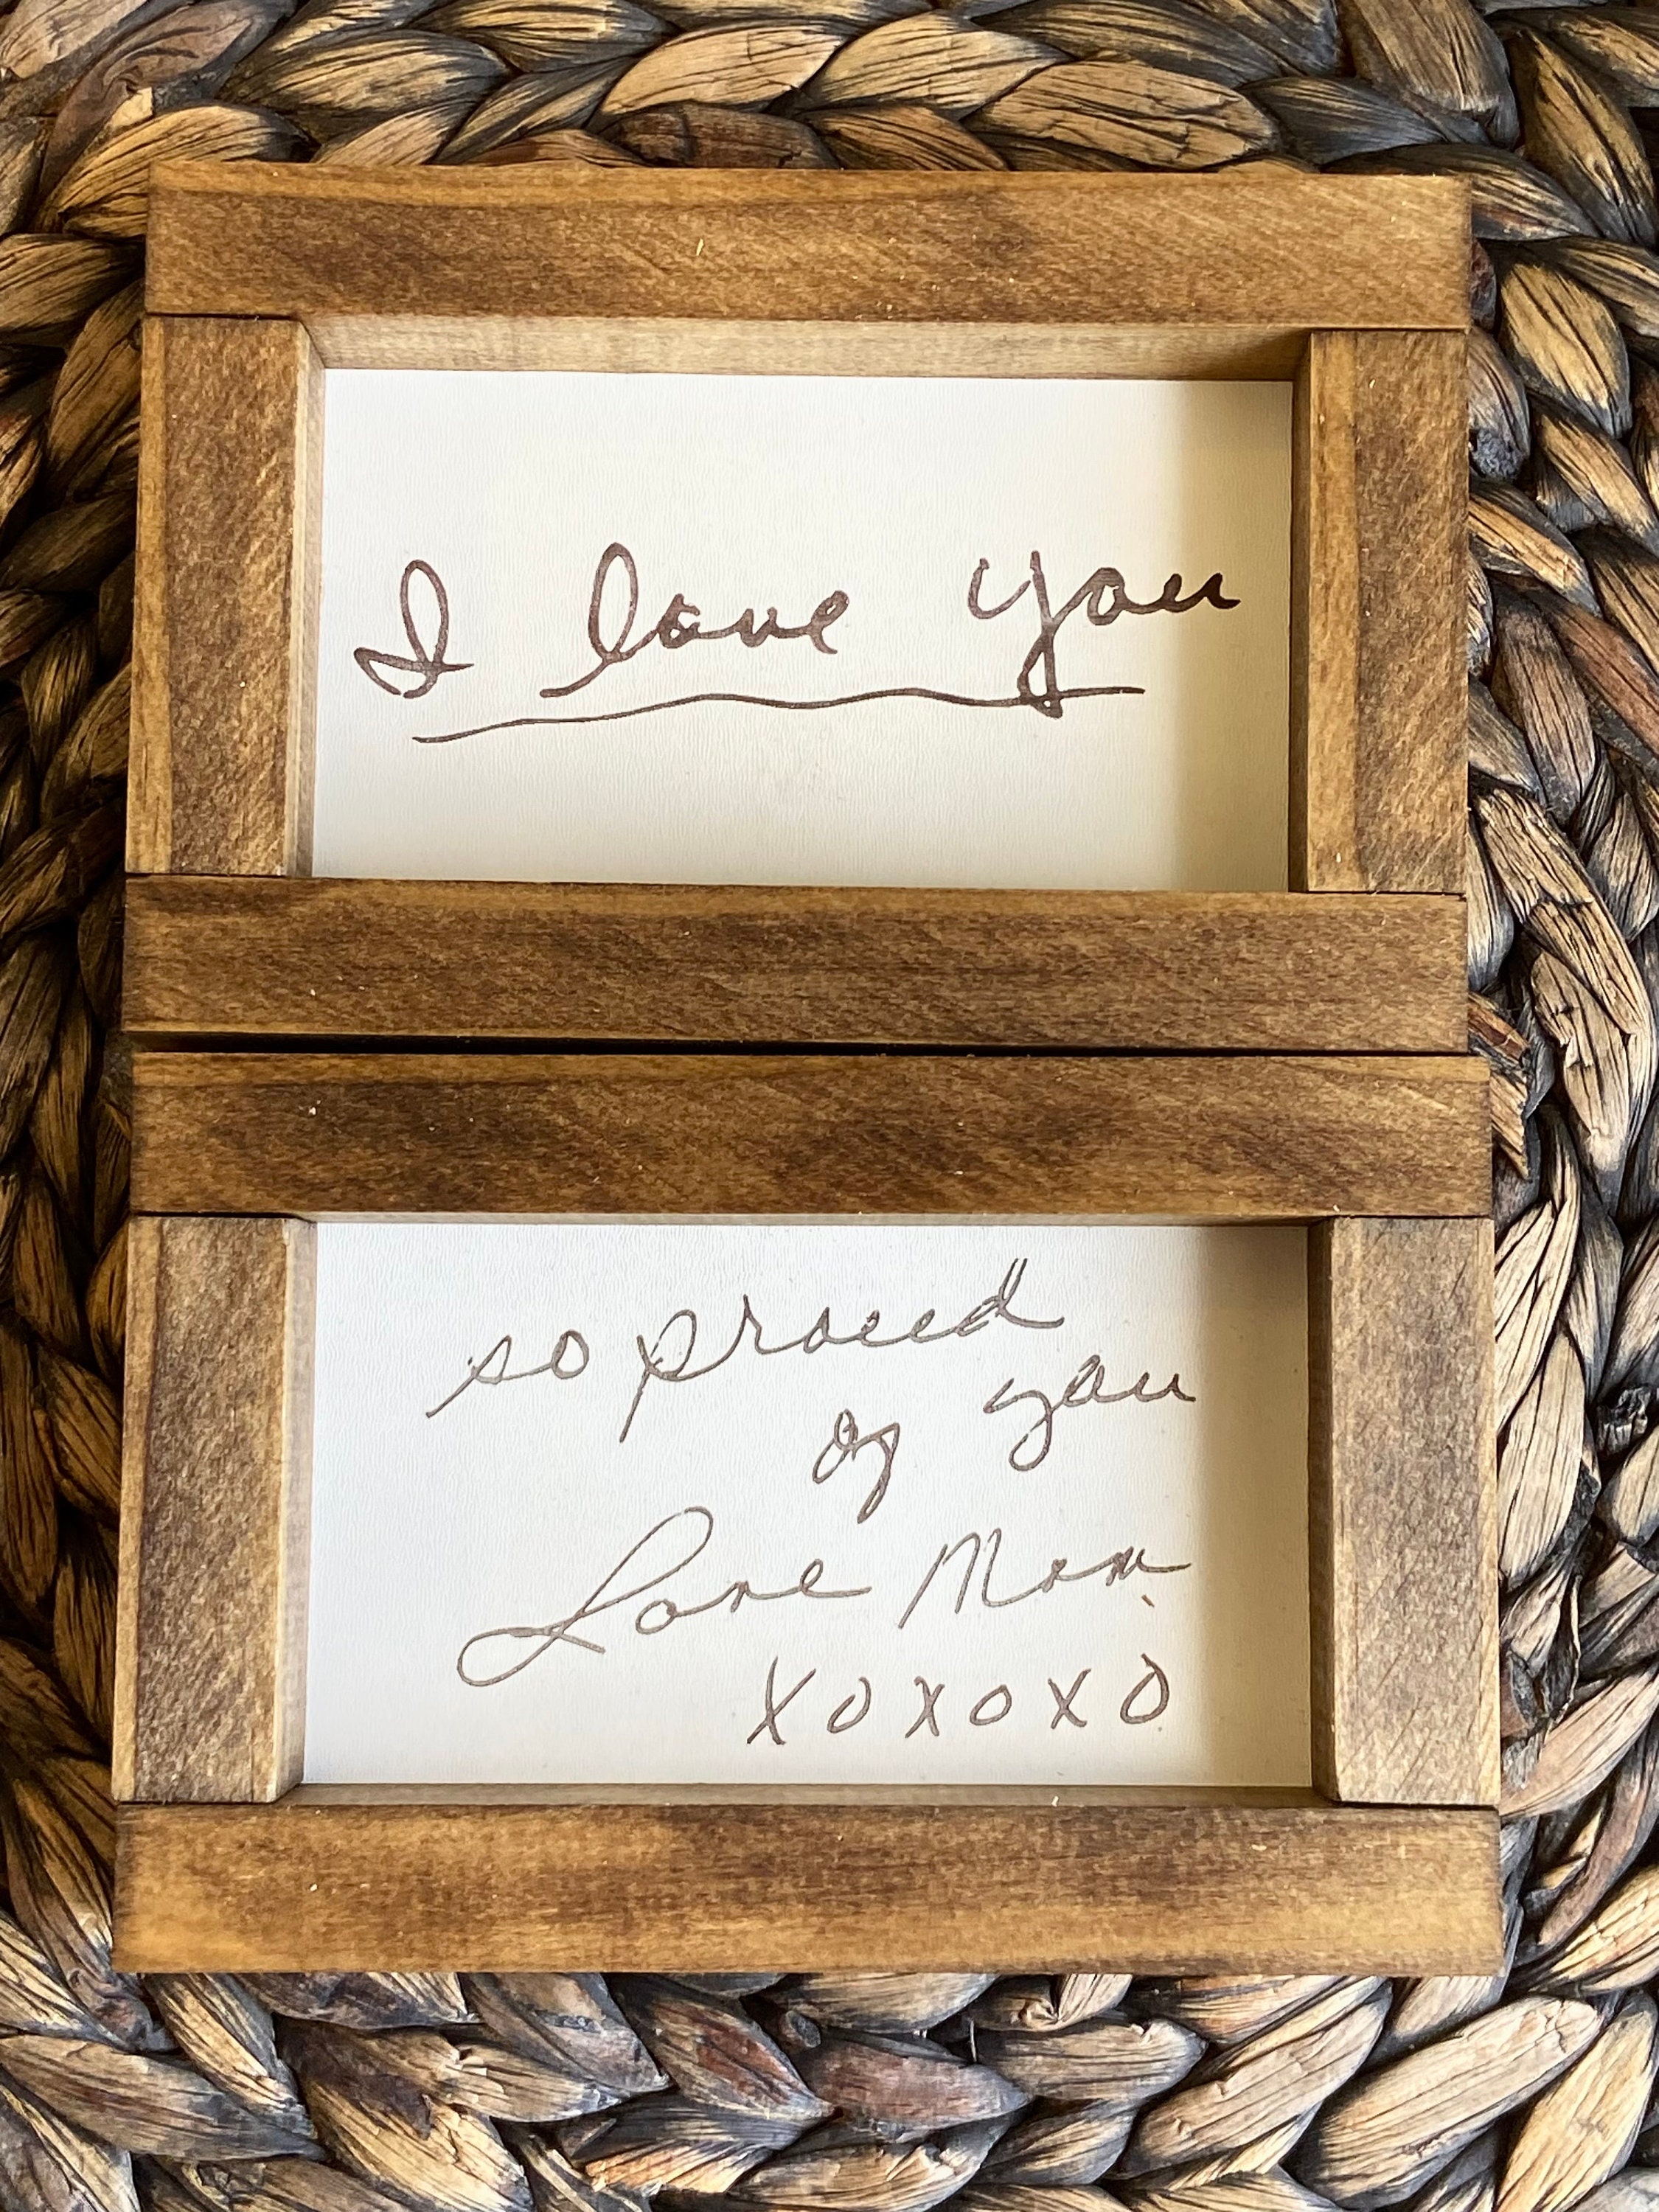 I love you
so proud
of you
Love Mom
XOXOXO